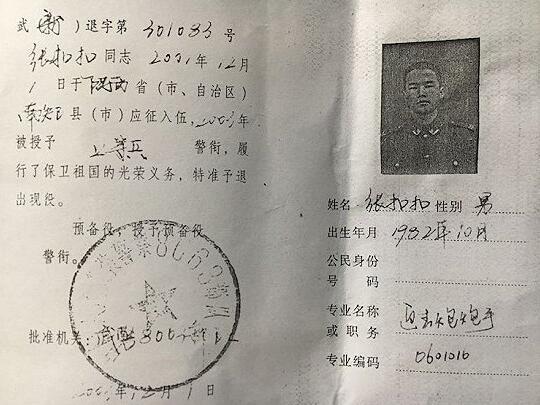 武（新）退字第 301083 号
张扣扣 同志 2001年12月
1日于陕西省（市、自治区）
南郑县（市）应征入伍，2003年
被授予 上等兵 警衔，履
行了保卫祖国的光荣义务，特准予退
出现役。
预备役；授予预备役
警衔。
批准机关：
2003年12月1日
姓名 张扣扣 性别 男
出生年月 1982年10月
公民身份
号码
专业名称 迫击炮炮手
或职务
专业编码 0601010